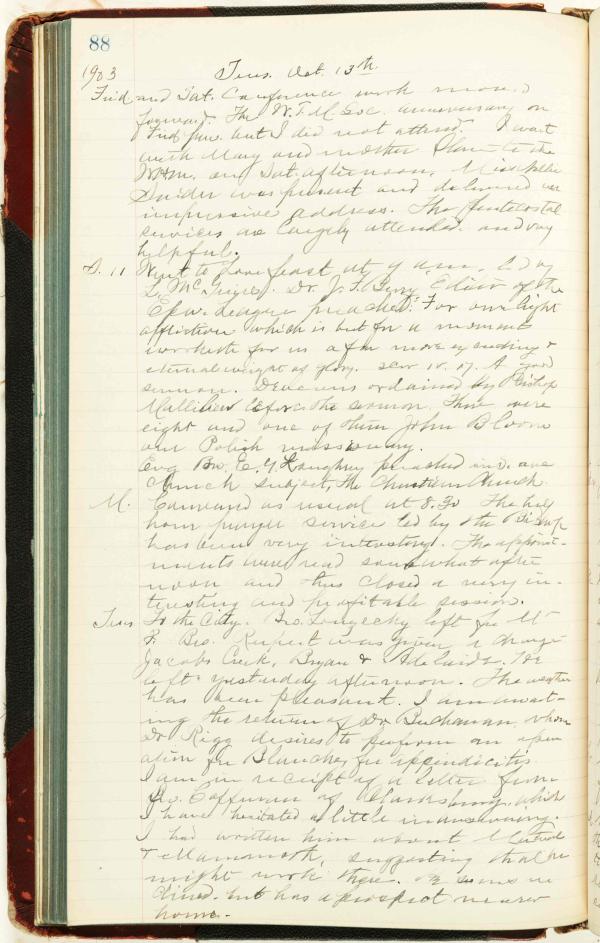 88
1903 Tues. Oct. 13th
Frid. and Sat. Conference work moved
forward. The W.F.M. Soc. anniversary on
Frid. but I did not attend. I went
with Mary and mother to the
W.H.M. on Sat. afternoon. Miss
Snider was present and delivered an
impressive address. The Pentecostal
services are largely attended and very
helpful.
S. 11 Went to love feast at 9 a.m. led by
L. McGuire. Dr. J. F. Berry Editor of the
Epw. League preached: "For our light
affliction which is but for a moment
worketh for us a far more exceeding &
eternal weight of glory. A good
sermon. Deacons ordained by Bishop
Mallilieu before the sermon. There were
eight and one of them John Bloom
our Polish missionary.
Evg. Bro. E. Y. preached in ave
Church subject, The Christian Church.
M. Convened as usual at 8.30 The half
hour prayer service led by the Bishop
has been very interesting. The appoint-
ments were read somewhat after
noon and thus closed a very in-
teresting and profitable session.
Tues. To the City. Bro. left for Mt
P. Bro. Rupert was given a charge
Jacobs Creek, Bryan & Adelaide. He
left yesterday afternoon. The weather
has been pleasant. I am await-
ing the return of Dr. Buchanan, whom
Dr Rigg desires to perform an oper-
ation for Blanche, for appendicitis.
I am in receipt of a letter from
Bro. Coffman of Clarksburg, which
I have hesitated a little in answering.
I had written him about
& Mammoth, suggesting that he
might work there. He seems in
clined but has a prospect nearer
home.-